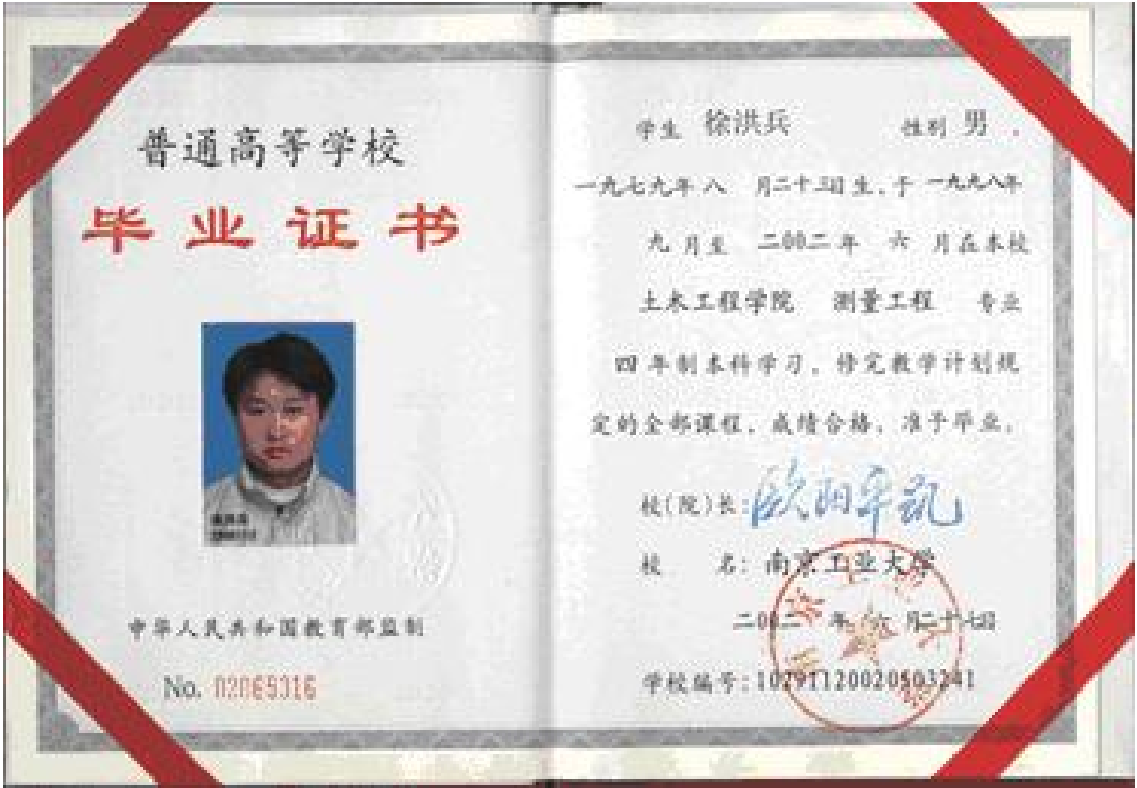 普通高等学校
毕业证书
中华人民共和国教育部监制
No. 02065316
学生 徐洪兵 性别 男 ,
一九七九年八 月二十三日生,于 一九九八年
九 月至 二00二 年 六 月在本校
土木工程学院 测量工程 专业
四 年制本科学习,修完教学计划规
定的全部课程,成绩合格,准予毕业。
校(院)长:
校 名: 南京工业大学
二00二 年 六 月二十七日
学校编号:10291120020503241